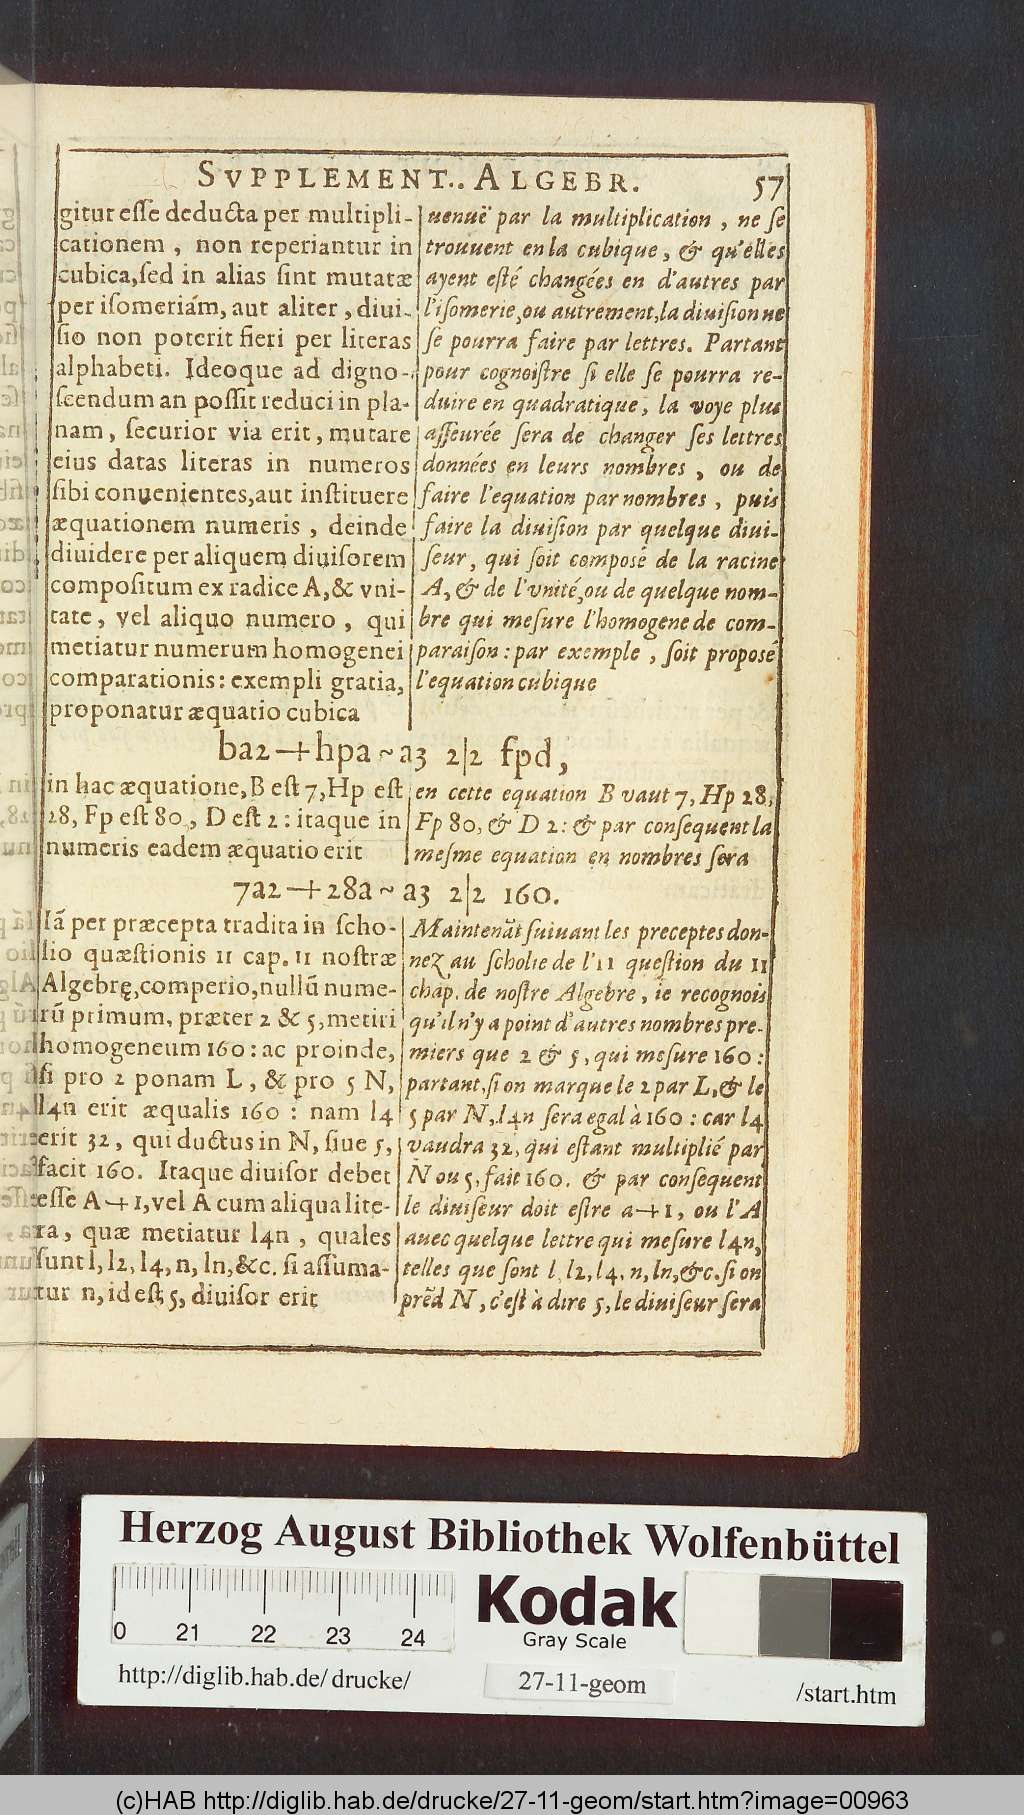 SVPPLEMENT.. ALGEBR. 57
gitur esse deducta per multipli-
cationem, non reperiantur in
cubica, sed in alias sint mutatæ
per isomeriám, aut aliter, diui-
sio non poterit fieri per literas
alphabeti. Ideoque ad digno-
scendum an possit reduci in pla-
nam, securior via erit, mutare
eius datas literas in numeros
sibi conuenientes, aut instituere
æquationem numeris, deinde
diuidere per aliquem diuisorem
compositum ex radice A, & vni-
tate, vel aliquo numero, qui
metiatur numerum homogenei
comparationis: exempli gratia,
proponatur æquatio cubica
uenuë par la multiplication, ne se
trouuent en la cubique, & qu'elles
ayent esté changées en d'autres par
l'isomerie, ou autrement, la diuision ne
se pourra faire par lettres. Partant
pour cognoistre si elle se pourra re-
duire en quadratique, la voye plus
asseurée sera de changer ses lettres
données en leurs nombres, ou de
faire l'equation par nombres, puis
faire la diuision par quelque diui-
seur, qui soit composé de la racine
A, & de l'vnité, ou de quelque nom-
bre qui mesure l'homogene de com-
paraison: par exemple, soit proposé
l'equation cubique
ba2 + hpa ~ a3 2|2 fpd,
in hac æquatione, B est 7, Hp est
28, Fp est 80, D est 2: itaque in
numeris eadem æquatio erit
en cette equation B vaut 7, Hp 28,
Fp 80, & D 2: & par consequent la
mesme equation en nombres sera
7a2 + 28a ~ a3 2|2 160.
Iã per præcepta tradita in scho-
lio quæstionis 11 cap. 11 nostræ
Algebrę, comperio, nullũ nume-
rũ primum, præter 2 & 5, metiri
homogeneum 160: ac proinde,
si pro 2 ponam L, & pro 5 N,
l4n erit æqualis 160: nam l4
erit 32, qui ductus in N, siue 5,
facit 160. Itaque diuisor debet
esse A + 1, vel A cum aliqua lite-
ra, quæ metiatur l4n, quales
sunt l, l2, l4, n, ln, &c. si assuma-
tur n, id est 5, diuisor erit
Maintenãt suiuant les preceptes don-
nez au scholie de l'11 question du 11
chap. de nostre Algebre, ie recognois
qu'il n'y a point d'autres nombres pre-
miers que 2 & 5, qui mesure 160:
partant, si on marque le 2 par L, & le
5 par N, l4n sera egal à 160: car l4
vaudra 32, qui estant multiplié par
N ou 5, fait 160. & par consequent
le diuiseur doit estre a + 1, ou l'A
auec quelque lettre qui mesure l4n,
telles que sont l, l2, l4, n, ln, &c. si on
prẽd N, c'est à dire 5, le diuiseur sera
Herzog August Bibliothek Wolfenbüttel
0 21 22 23 24
Kodak
Gray Scale
http://diglib.hab.de/drucke/
27-11-geom
/start.htm
(c)HAB http://diglib.hab.de/drucke/27-11-geom/start.htm?image=00963